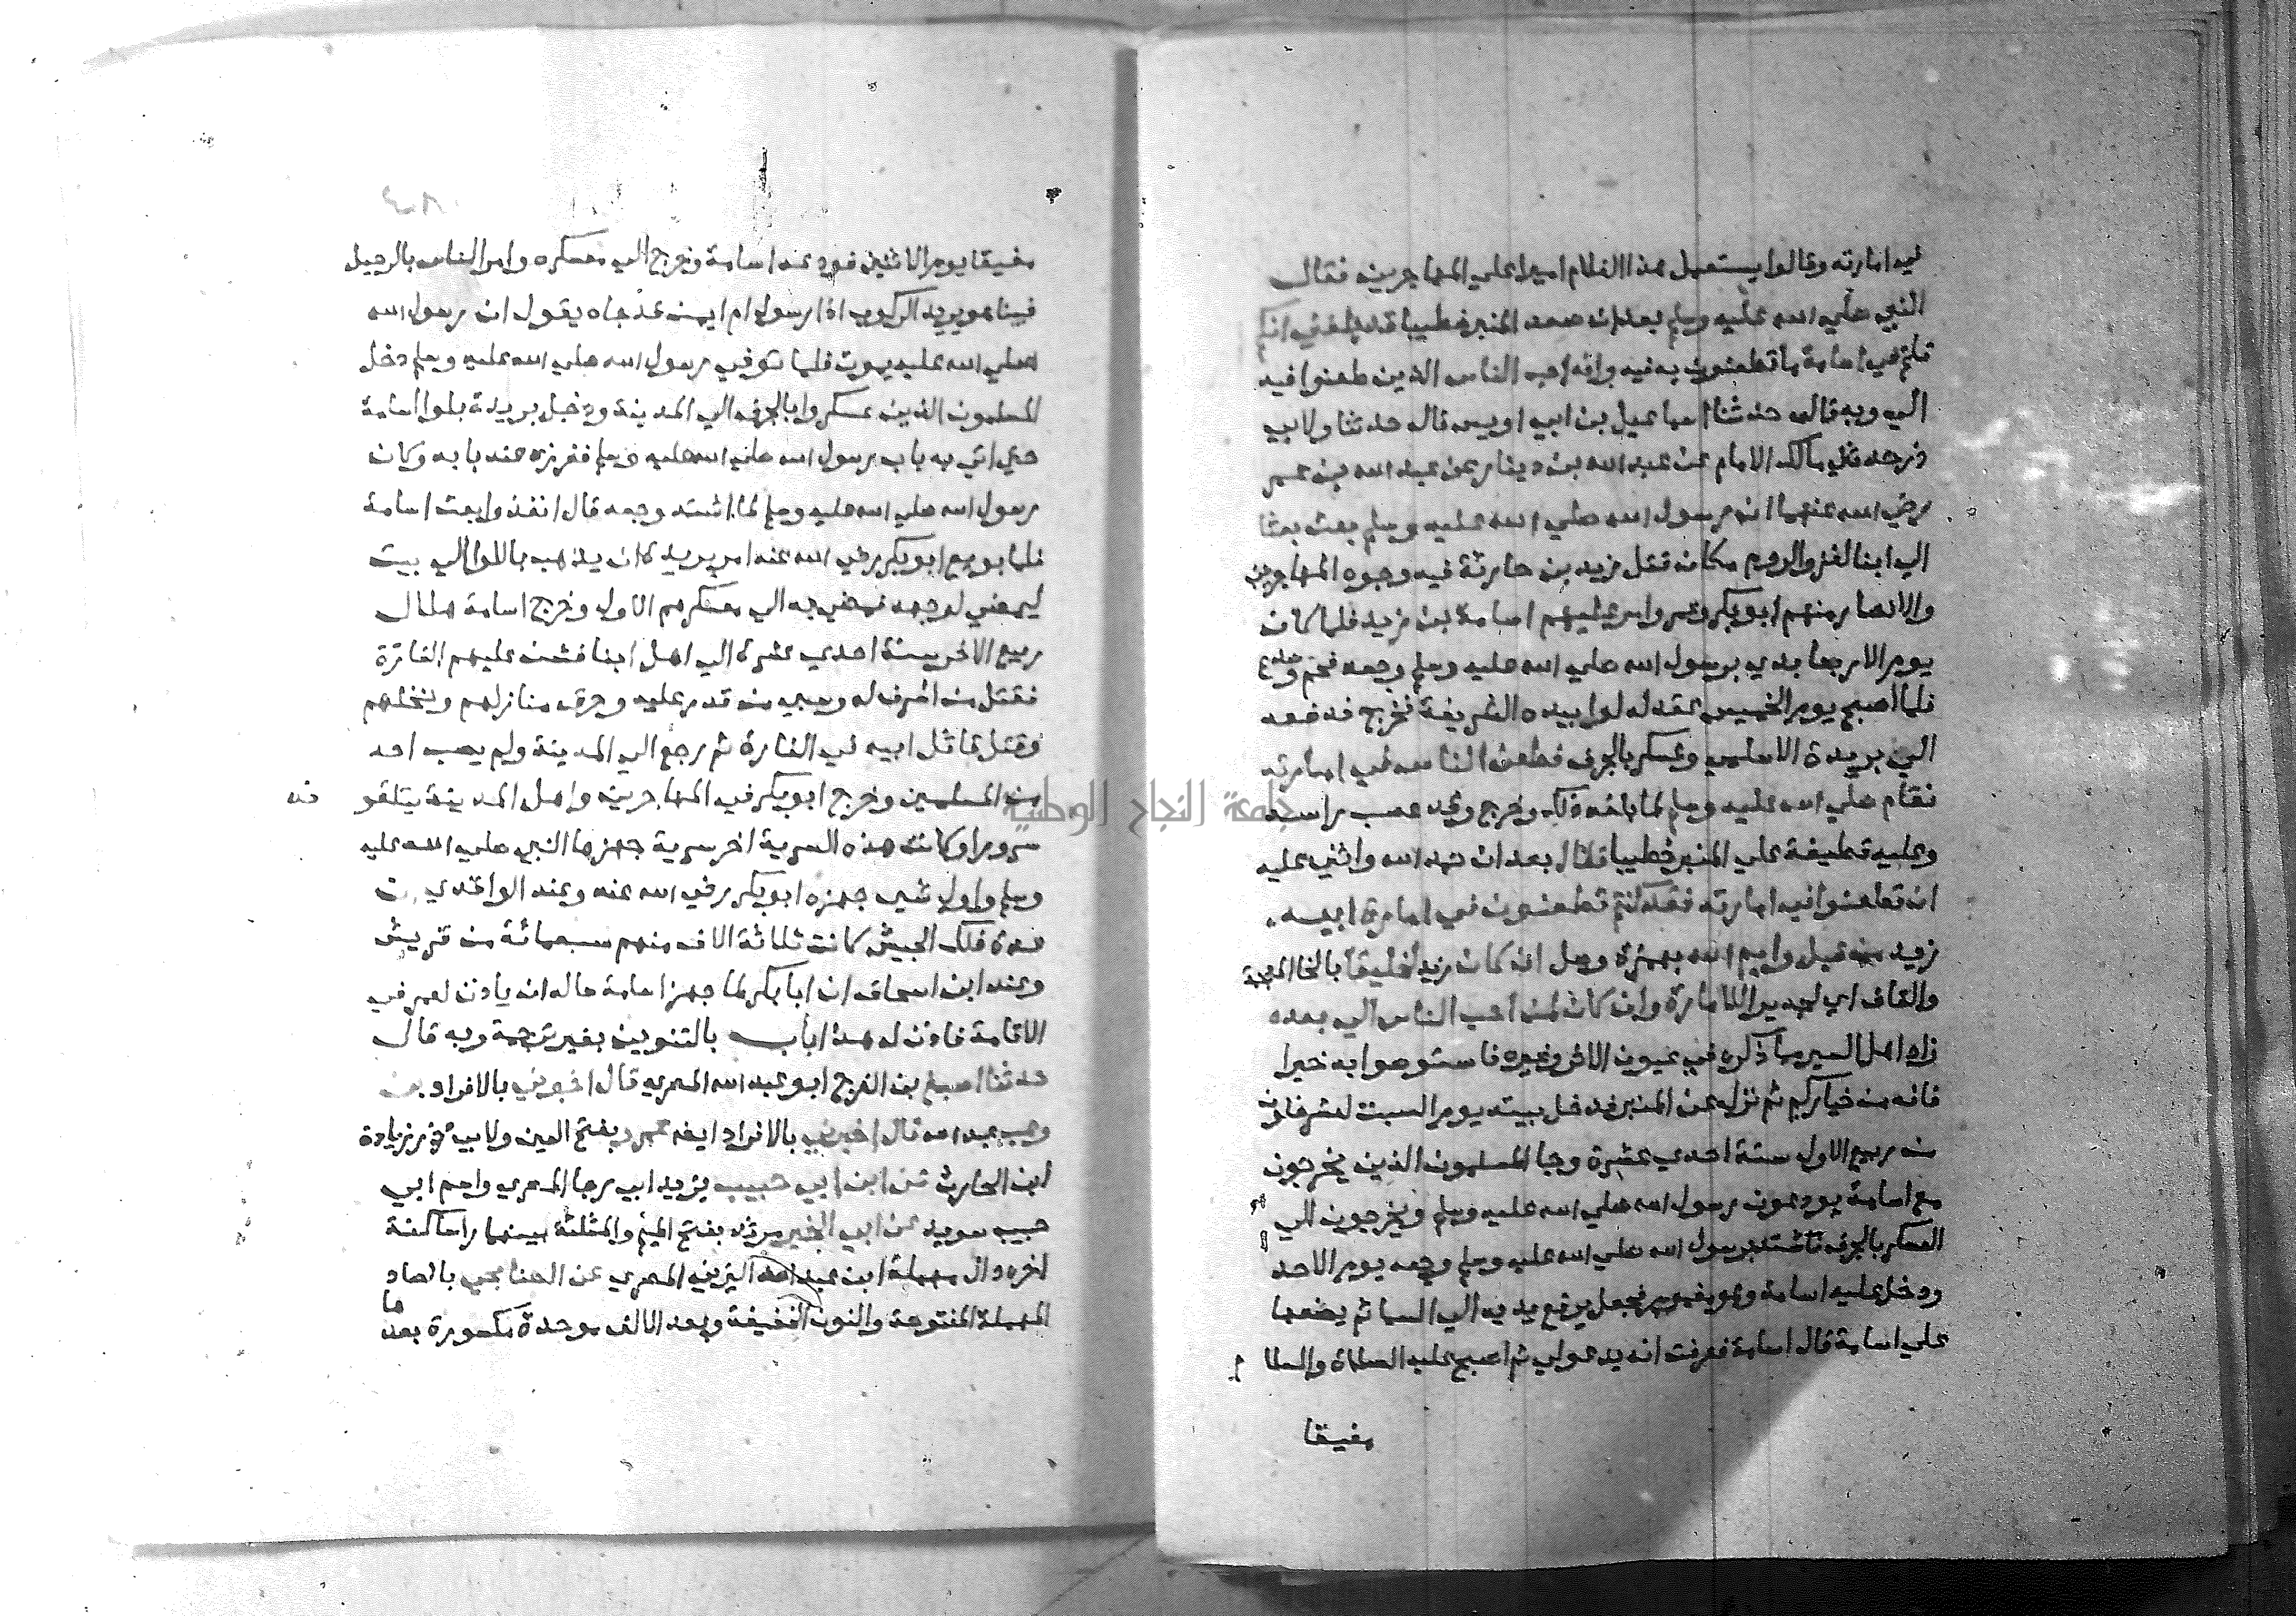 في امارته وقالوا يستعمل هذا الغلام اميرا علي المهاجرين فقال
النبي صلي الله عليه وسلم بعد ان صعد المنبر خطيبا قد بلغني انكم
قلتم في اسامة ما تطعنون به فيه وانه احب الناس الذين طعنوا فيه
الي وبه قال حدثنا اسماعيل بن ابي اويس قال حدثنا ولابي
ذر حدثني مالك الامام عن عبد الله بن دينار عن عبد الله بن عمر
رضي الله عنهما ان رسول الله صلي الله عليه وسلم بعث بعثا
الي ابنا لغزو الروم مكان قتل زيد بن حارثة فيه وجوه المهاجرين
والانصار منهم ابو بكر وعمر وامر عليهم اسامة بن زيد فلما كان
يوم الاربعا بدي برسول الله صلي الله عليه وسلم وجعه فحم وصدع
فلما اصبح يوم الخميس عقد له لوا بيده الشريفة فخرج فدفعه
الي بريدة الاسلمي وعسكر بالجرف فطعن الناس في امارته
فقام صلي الله عليه وسلم لما بلغه ذلك وخرج وقد عصب راسه
وعليه قطيفة علي المنبر خطيبا فقال بعد ان حمد الله واثني عليه
ان تطعنوا في امارته فقد كنتم تطعنون في امارة ابيه
زيد من قبل وايم الله بهمزة وصل ان كان زيد لخليقا بالخا المعجمة
والقاف اي لجديرا للامارة وان كان لمن احب الناس الي بعده
زاد اهل السير مما ذكره في عيون الاثر وغيره فاستوصوا به خيرا
فانه من خياركم ثم نزل عن المنبر فدخل بيته يوم السبت لعشر خلون
من ربيع الاول سنة احدي عشرة وجا المسلمون الذين يخرجون
مع اسامة يودعون رسول الله صلي الله عليه وسلم ويخرجون الي
العسكر بالجرف فاشتد برسول الله صلي الله عليه وسلم وجعه يوم الاحد
ودخل عليه اسامة وهو مغمور فجعل يرفع يديه الي السما ثم يضعها
علي اسامة قال اسامة فعرفت انه يدعو لي ثم اصبح عليه الصلاة والسلام
مفيقا
مفيقا يوم الاثنين فودعه اسامة وخرج الي معسكره وامر الناس بالرحيل
فبينا هو يريد الركوب اذا رسول ام ايمن قد جاه يقول ان رسول الله
صلي الله عليه يموت فلما توفي رسول الله صلي الله عليه وسلم دخل
المسلمون الذين عسكروا بالجرف الي المدينة ودخل بريدة بلوا اسامة
حتي اتي به باب رسول الله صلي الله عليه وسلم فغرزه عند بابه وكان
رسول الله صلي الله عليه وسلم لما اشتد وجعه قال انفذوا بعث اسامة
فلما بويع ابو بكر رضي الله عنه امر بريدة ان يذهب باللوا الي بيت
ليمضي لوجهه فمضي به الي معسكرهم الاول وخرج اسامة هلال
ربيع الاخر سنة احدي عشرة الي اهل ابنا فشن عليهم الغارة
فقتل من اشرف له وسبي من قدر عليه وحرق منازلهم ونخلهم
وقتل قاتل ابيه في الغارة ثم رجع الي المدينة ولم يصب احد
من المسلمين وخرج ابو بكر في المهاجرين واهل المدينة يتلقونه
سرورا وكانت هذه السرية اخر سرية جهزها النبي صلي الله عليه
وسلم واول شي جهزه ابو بكر رضي الله عنه وعند الواقدي ان
عدة ذلك الجيش كانت ثلاثة الاف منهم سبعمائة من قريش
وعند ابن اسحاق ان ابا بكر لما جهز اسامة ساله ان ياذن لعمر في
الاقامة فاذن له هذا باب بالتنوين بغير ترجمة وبه قال
حدثنا اصبغ بن الفرج ابو عبد الله المصري قال اخبرني بالافراد بن
وهب عبد الله قال اخبرني بالافراد ايضا عمرو بفتح العين ولابي ذر زيادة
ابن الحارث عن ابن ابي حبيب يزيد ابي رجا المصري واسم ابي
حبيب سويد عن ابي الخير مرثد بفتح الميم والمثلثة بينهما را ساكنة
اخره دال مهملة ابن عبد الله اليزني المصري عن الصنابحي بالصاد
المهملة المفتوحة والنون الخفيفة وبعد الالف موحدة مكسورة بعدها
جامعة النجاح الوطنية